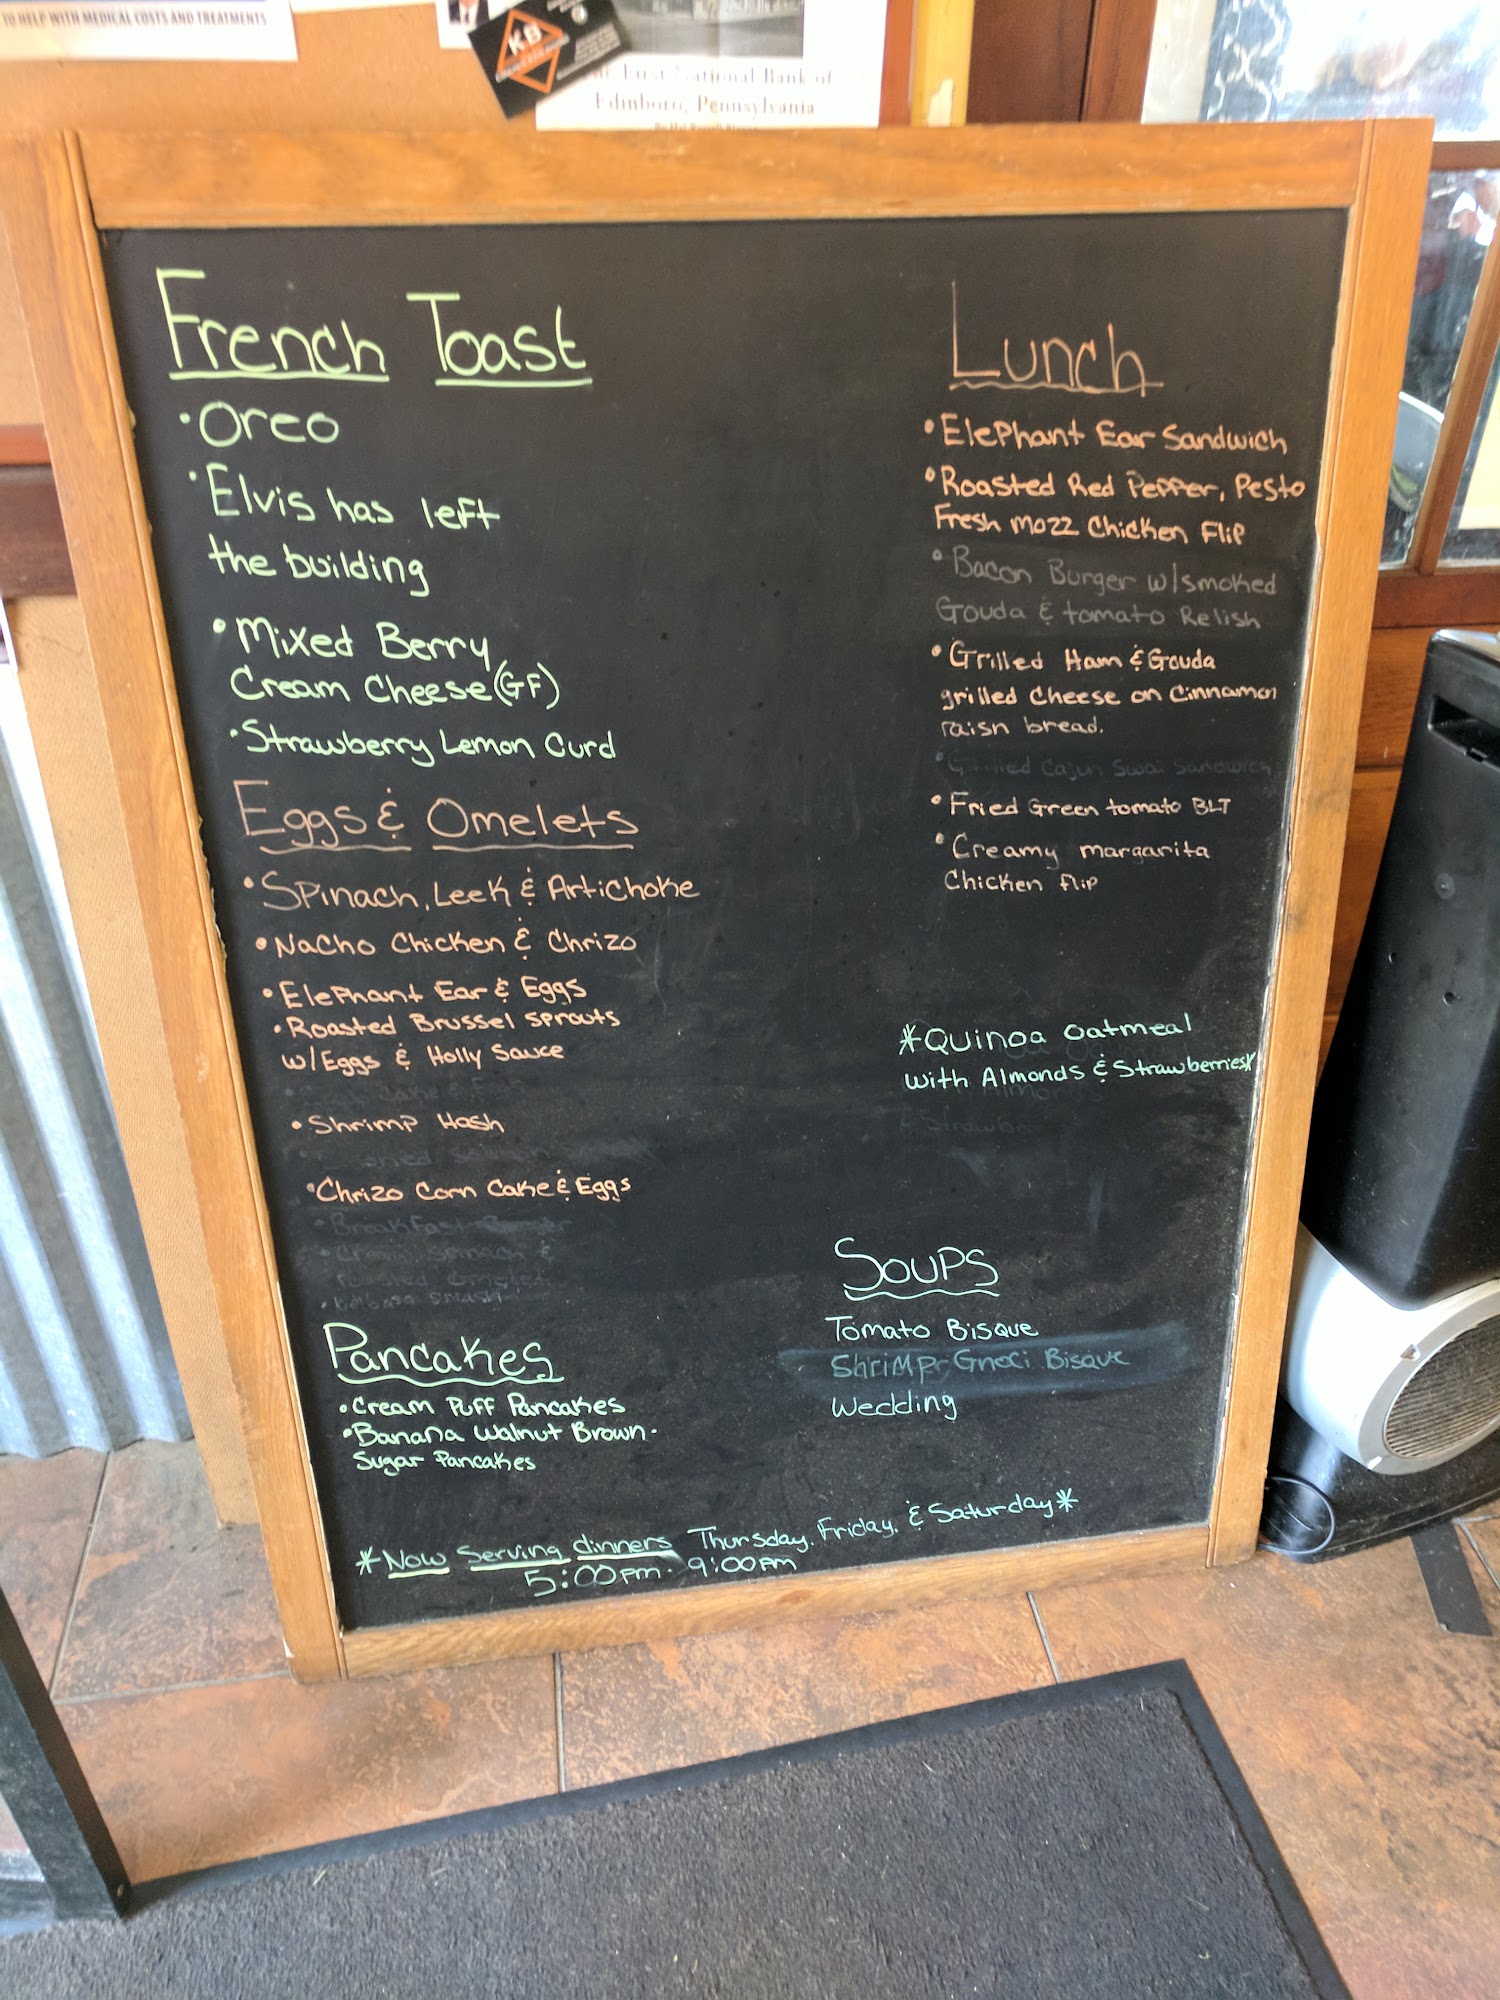 TO HELP WITH MEDICAL COSTS AND TREATMENTS
KB
The First National Bank of
Edinboro, Pennsylvania
French Toast
• Oreo
• Elvis has left
the building
• Mixed Berry
Cream Cheese (GF)
• Strawberry Lemon Curd
Eggs & Omelets
• Spinach, Leek & Artichoke
• Nacho Chicken & Chrizo
• Elephant Ear & Eggs
• Roasted Brussel sprouts
w/Eggs & Holly Sauce
• Shrimp Hash
• Chrizo Corn Cake & Eggs
• Breakfast Burger
Pancakes
• Cream Puff Pancakes
• Banana Walnut Brown-
Sugar Pancakes
Lunch
• Elephant Ear Sandwich
• Roasted Red Pepper, Pesto
Fresh mozz Chicken Flip
• Bacon Burger w/smoked
Gouda & tomato Relish
• Grilled Ham & Gouda
grilled Cheese on Cinnamon
raisn bread.
• Grilled Cajun Swai Sandwich
• Fried Green tomato BLT
• Creamy margarita
Chicken flip
*Quinoa oatmeal
with Almonds & Strawberries*
Soups
Tomato Bisque
Shrimp Gnoci Bisque
Wedding
*Now Serving dinners Thursday, Friday, & Saturday*
5:00pm - 9:00pm